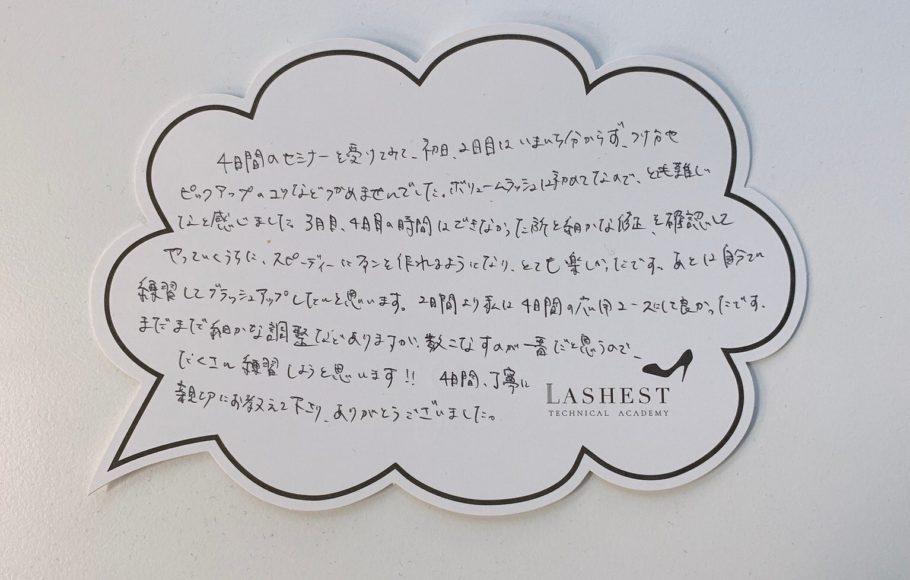 4日間のセミナーを受けてみて、初日、2日目はいまいち分からず、つけ方や
ピックアップのコツなどつかめませんでした。ボリュームラッシュは初めてなので、とても難しい
なと感じました。3日目、4日目の時間はできなかった所と細かな修正を確認して
やっていくうちに、スピーディーにファンを作れるようになり、とても楽しかったです。あとは自分で
練習してブラッシュアップしたいと思います。2日間より私は4日間の応用コースにして良かったです。
まだまだ細かな調整などありますが、数こなすのが一番だと思うので、
たくさん練習しようと思います!! 4日間、丁寧に
親切にお教えて下さり、ありがとうございました。
LASHEST
TECHNICAL ACADEMY